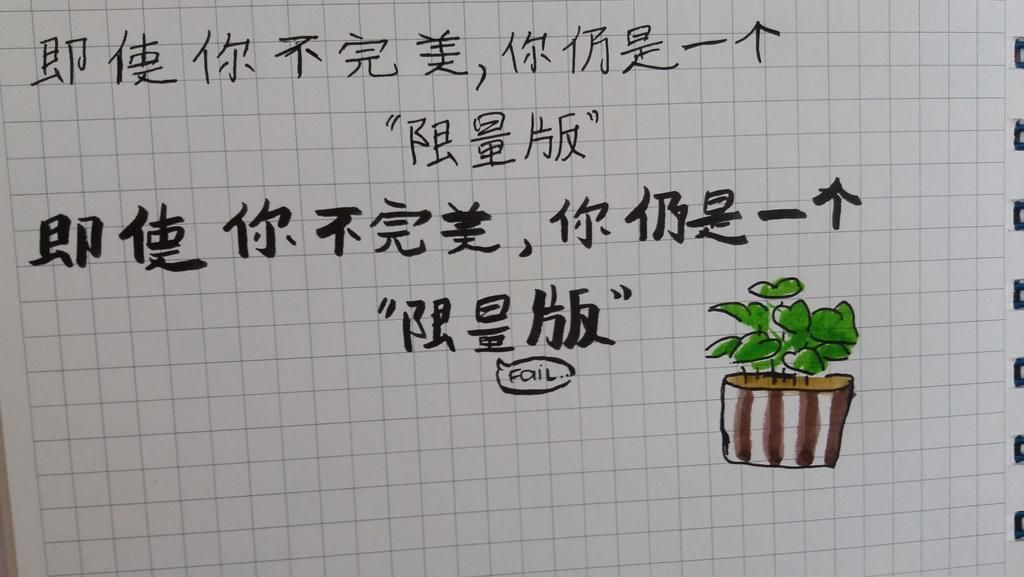 即使你不完美,你仍是一个
"限量版"
即使你不完美,你仍是一个
"限量版"
FaiL...